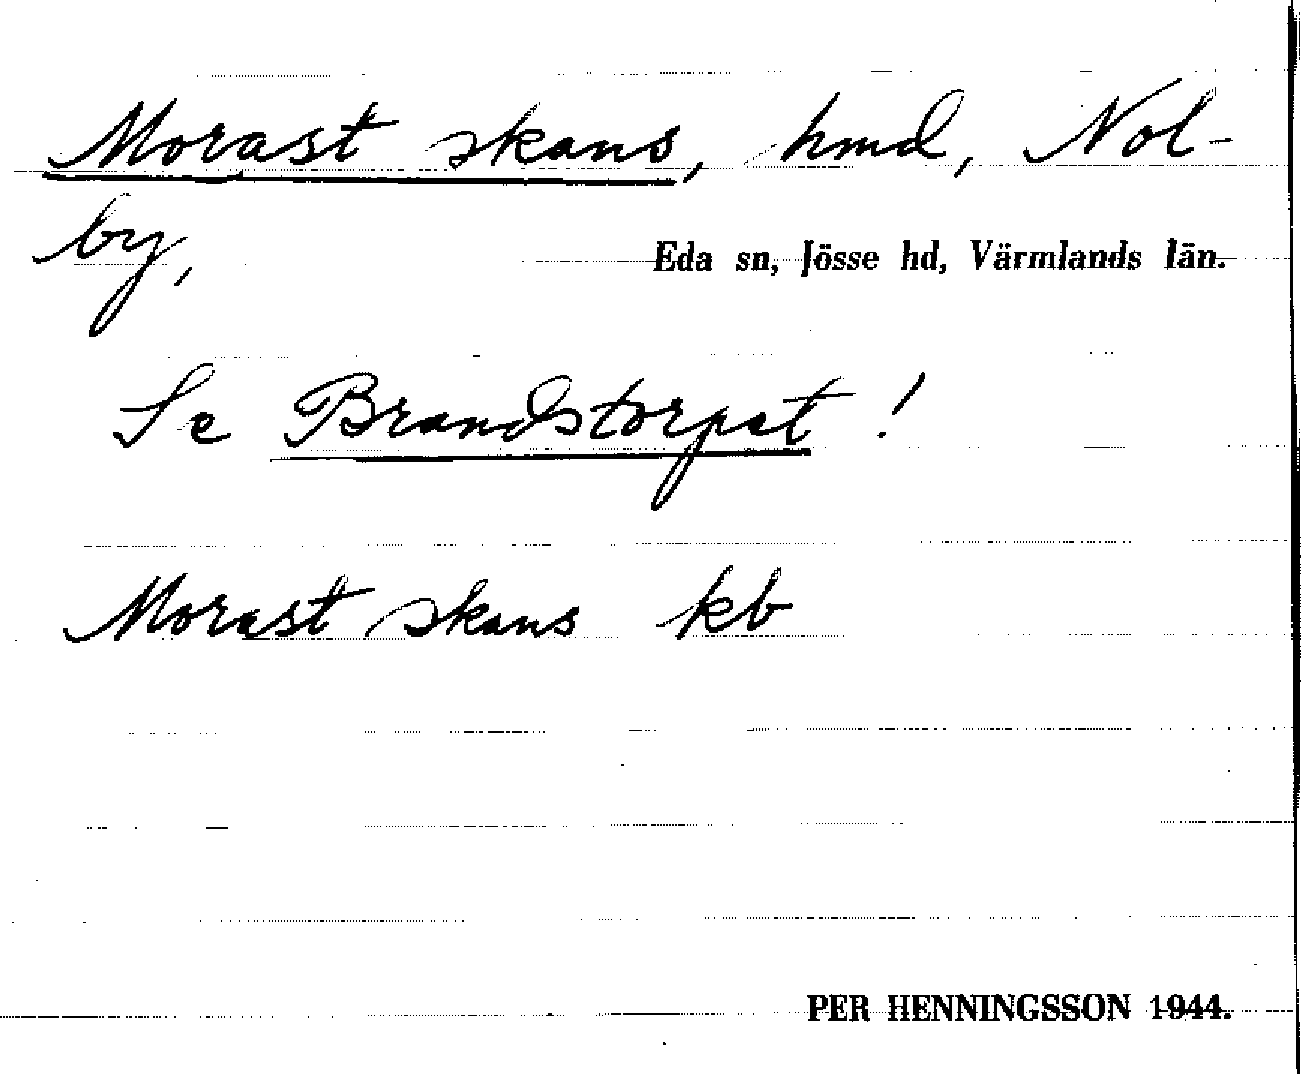 Morast skans, hmd, Nol-
by,
Eda sn, Jösse hd, Värmlands län.
Se Brandstorpet !
Morast skans kb
PER HENNINGSSON 1944.